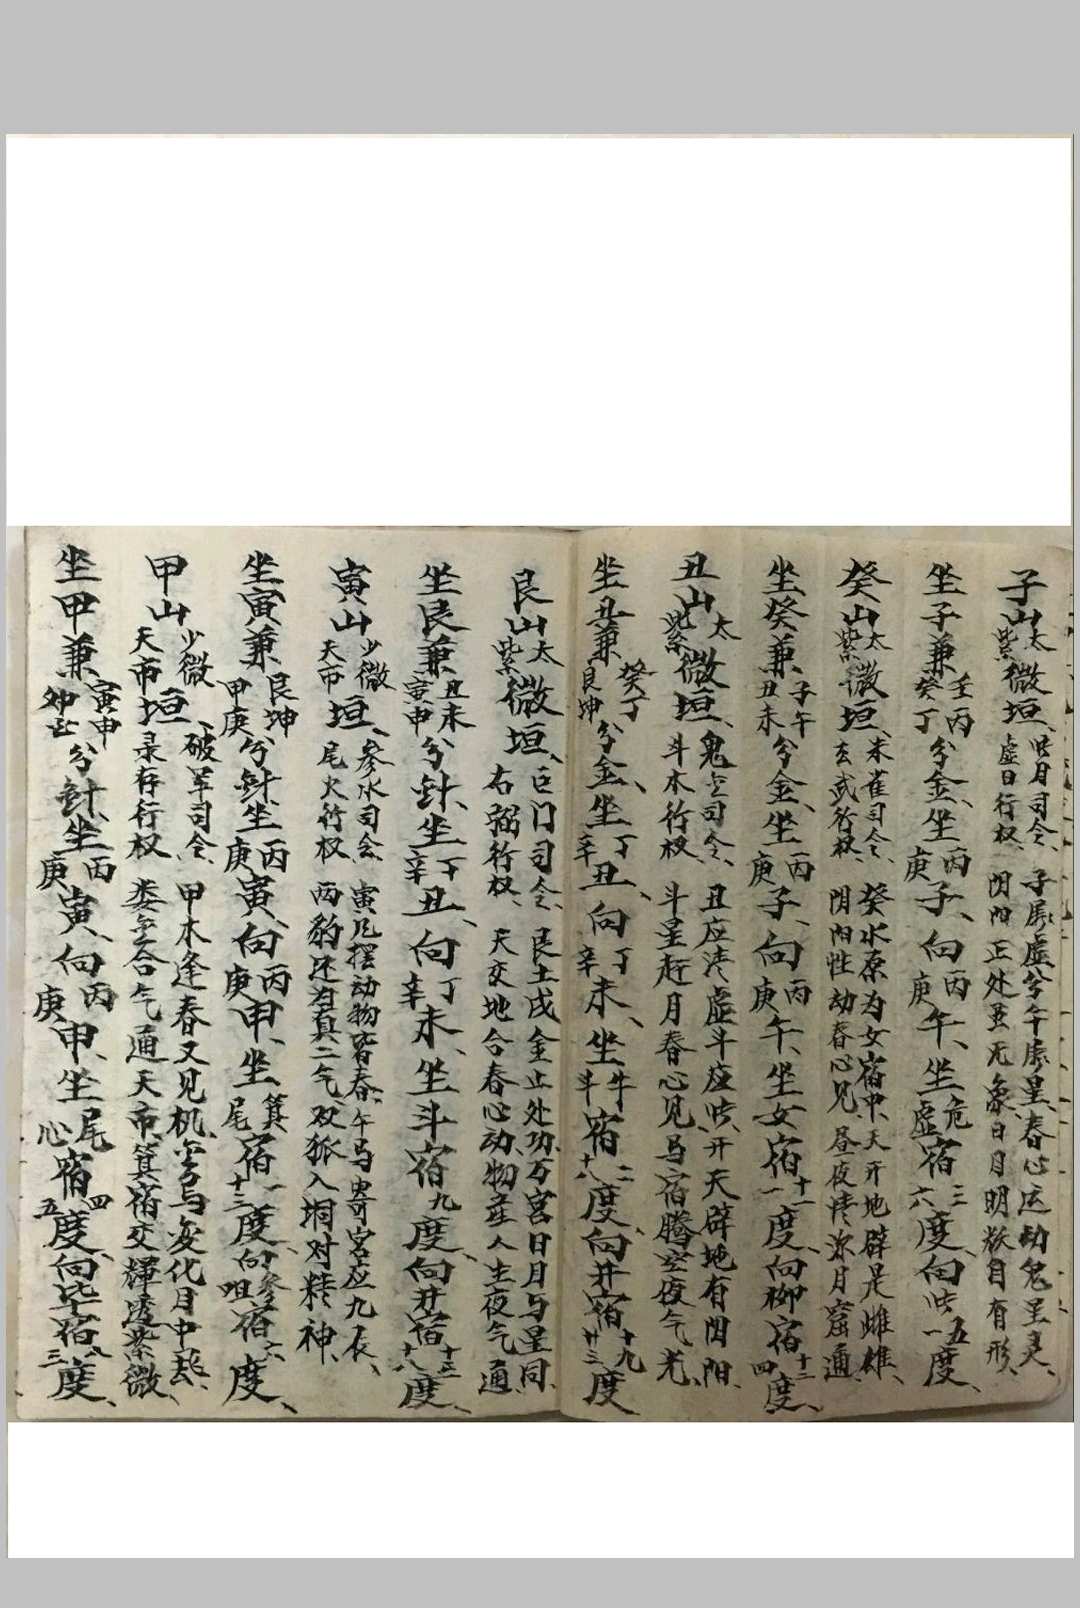 子山太紫微垣、
毕月司令、子属虚兮午属星、春心运动鬼星灵、
虚日行权、阴阳正处至无象、日月明然自有形、
坐子兼壬丙癸丁兮金、坐丙庚子、向丙庚午、坐危虚宿三六度、向毕五一度、
癸山太紫微垣、
朱雀司令、癸水原为女宿中、天开地辟是雌雄、
玄武行权、阴阳性动春心见、昼夜清凉月窟通、
坐癸兼子午丑未兮金、坐丙庚子、向丙庚午、坐女宿十一一度、向柳宿十三四度、
丑山太紫微垣、
鬼金司令、丑应清虚斗应毕、开天辟地有阴阳、
斗木行权、斗星赶月春心见、马宿腾空夜气光、
坐丑兼癸丁艮坤兮金、坐丁辛丑、向丁辛未、坐牛斗宿二十八度、向井宿十九廿三度、
艮山太紫微垣、
巨门司令、艮土戌金止处功、万宫日月与星同、
右弼行权、天交地合春心动、物产人生夜气通、
坐艮兼丑未寅申兮针、坐丁辛丑、向丁辛未、坐斗宿九度、向井宿十三十八度、
寅山少微天市垣、
参水司令、寅凡摆动物皆春、午马寄宫应九辰、
尾火行权、两豹还为真二气、双狐入洞对精神、
坐寅兼艮坤甲庚兮针、坐丙庚寅、向丙庚申、坐箕尾宿一十三度、向参咀宿六度、
甲山少微天市垣、
破军司令、甲木逢春又见机、玄与安化月中起、
录存行权、娄金合气通天市、箕宿交辉透紫微、
坐甲兼寅申卯兮针、坐丙庚寅、向丙庚申、坐尾心宿四五度、向毕宿八三度、